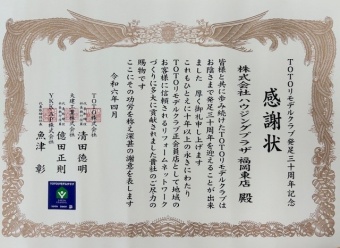 TOTOリモデルクラブ発足三十周年記念
感謝状
株式会社 ハウジングプラザ 福岡東店 殿
皆様と共に歩み続けたTOTOリモデルクラブは
お陰さまで発足三十周年を迎えることが出来
ました 厚く御礼申し上げます
これもひとえに十年以上の永きにわたり
TOTOリモデルクラブ正会員店として地域の
お客様に信頼されるリフォームネットワーク
づくりに多大に貢献されました貴社のご尽力の
賜物です
ここにその功労を称え深甚の謝意を表します
令和六年四月
TOTO株式会社
清田徳明
大建工業株式会社
億田正則
YKKAP株式会社
魚津 彰